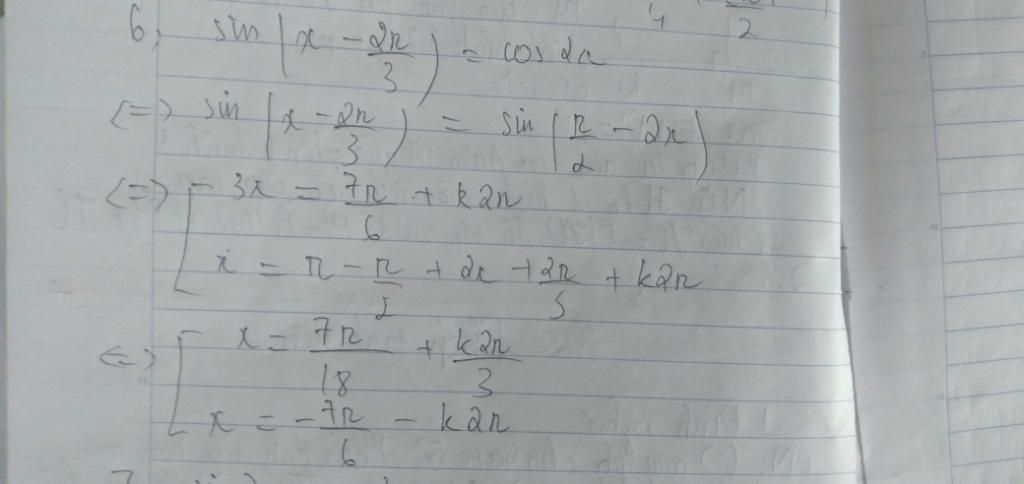 6, sin(x - 2π/3) = cos 2x
<=> sin(x - 2π/3) = sin(π/2 - 2x)
<=> [ 3x = 7π/6 + k2π
x = π - π/2 + 2x + 2π/3 + k2π
<=> [ x = 7π/18 + k2π/3
x = -7π/6 - k2π